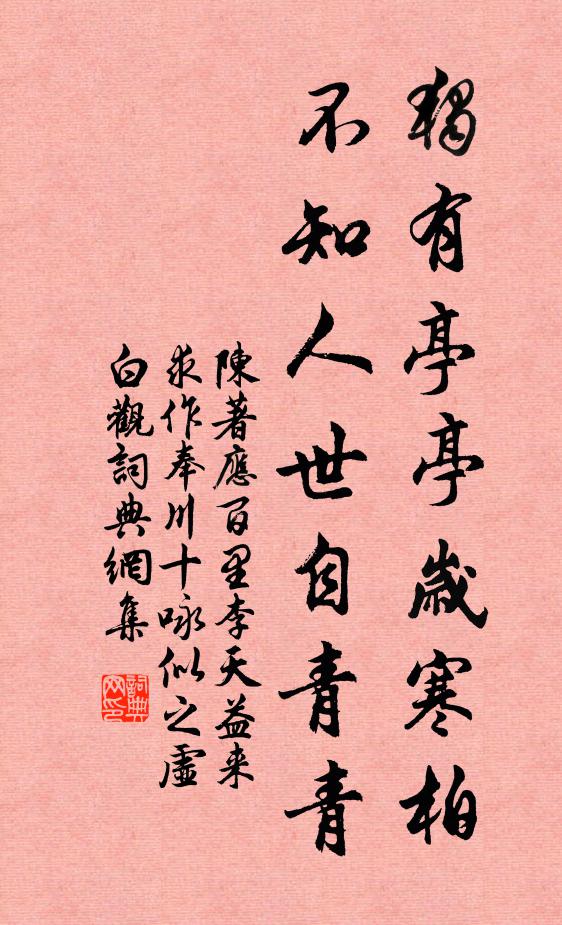 獨有亭亭歲寒柏
不知人世自青青
陳著應百里李天益来
求作奉川十咏似之虛
白觀詞典網集
詞典網印